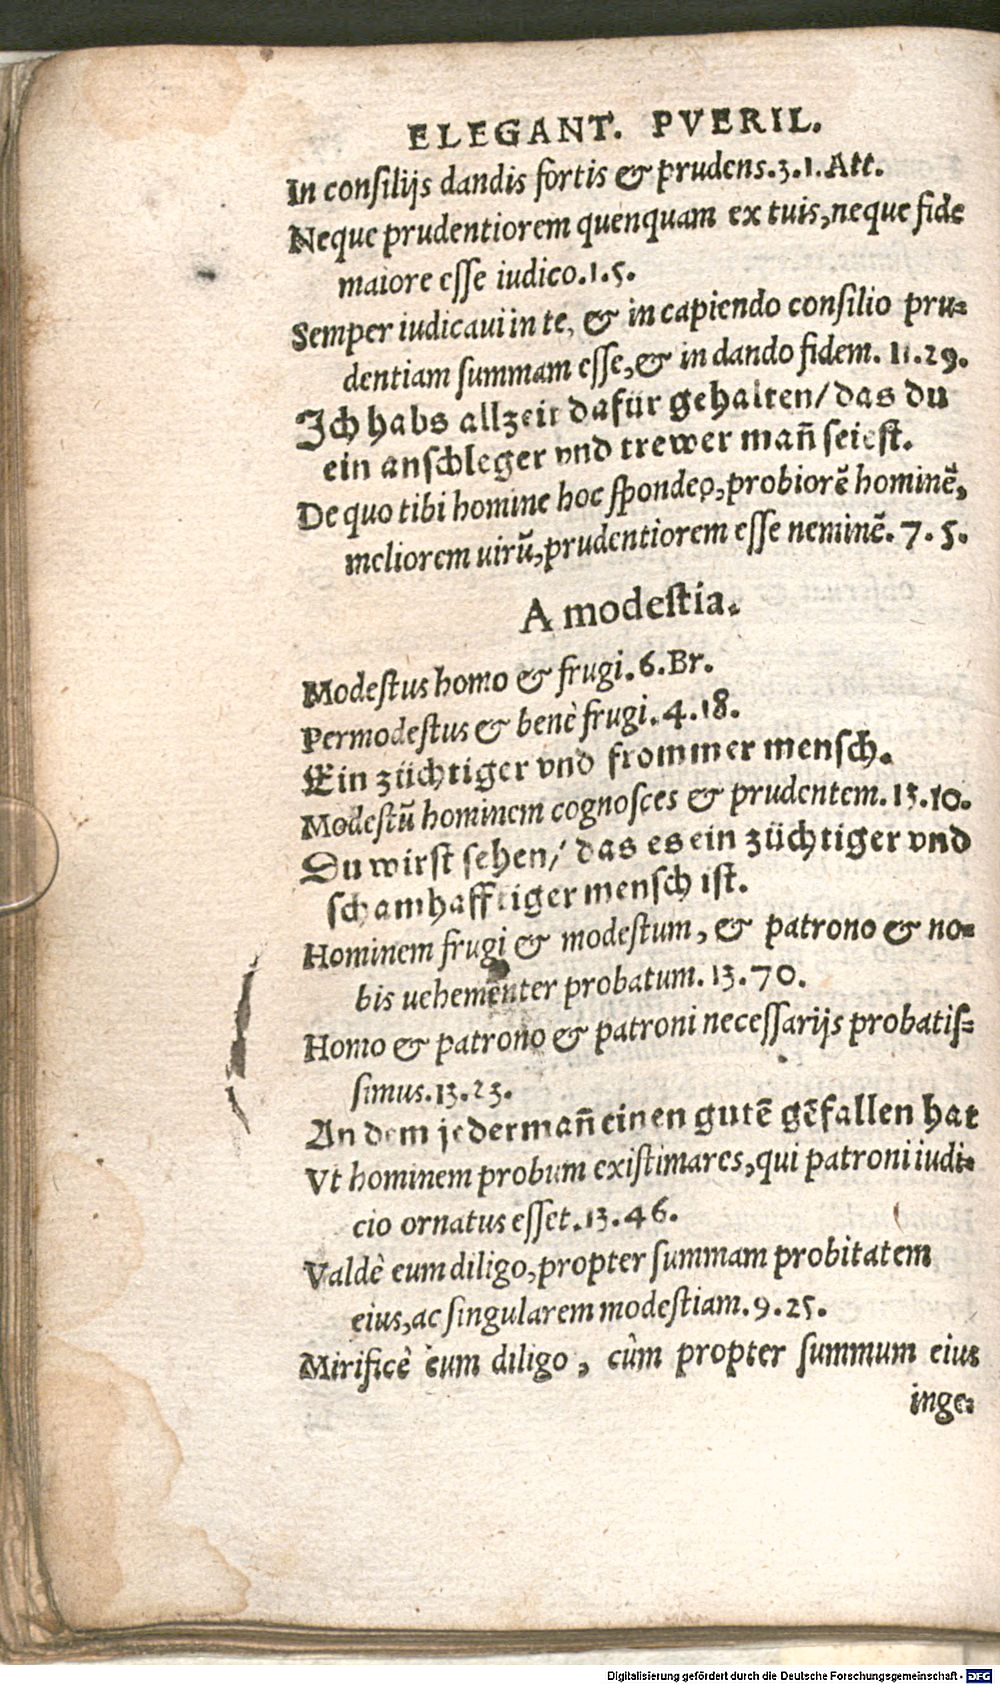 ELEGANT. PVERIL.
In conſilijs dandis fortis & prudens.3.1.Att.
Neque prudentiorem quenquam ex tuis,neque fide
maiore eſſe iudico.1.5.
Semper iudicaui in te, & in capiendo conſilio pru⸗
dentiam ſummam eſſe,& in dando fidem. 11.29.
Ich habs allzeit dafür gehalten/das du
ein anſchleger vnd trewer mañ ſeieſt.
De quo tibi homine hoc ſpondeo,probiorē hominē,
meliorem uirū,prudentiorem eſſe neminē.7.5.
A modeſtia.
Modeſtus homo & frugi.6.Br.
Permodeſtus & benè frugi.4.18.
Ein züchtiger vnd frommer menſch.
Modeſtū hominem cognoſces & prudentem.13.10.
Du wirſt ſehen/ das es ein züchtiger vnd
ſchamhafftiger menſch iſt.
Hominem frugi & modeſtum, & patrono & no⸗
bis uehementer probatum.13.70.
Homo & patrono & patroni neceſſarijs probatiſ⸗
ſimus.13.23.
An dem jedermañ einen gutē gēfallen hat
Vt hominem probum exiſtimares,qui patroni iudi⸗
cio ornatus eſſet.13.46.
Valdè eum diligo,propter ſummam probitatem
eius,ac ſingularem modeſtiam.9.25.
Mirificè eum diligo, cùm propter ſummum eius
inge⸗
Digitalisierung gefördert durch die Deutsche Forschungsgemeinschaft - DFG